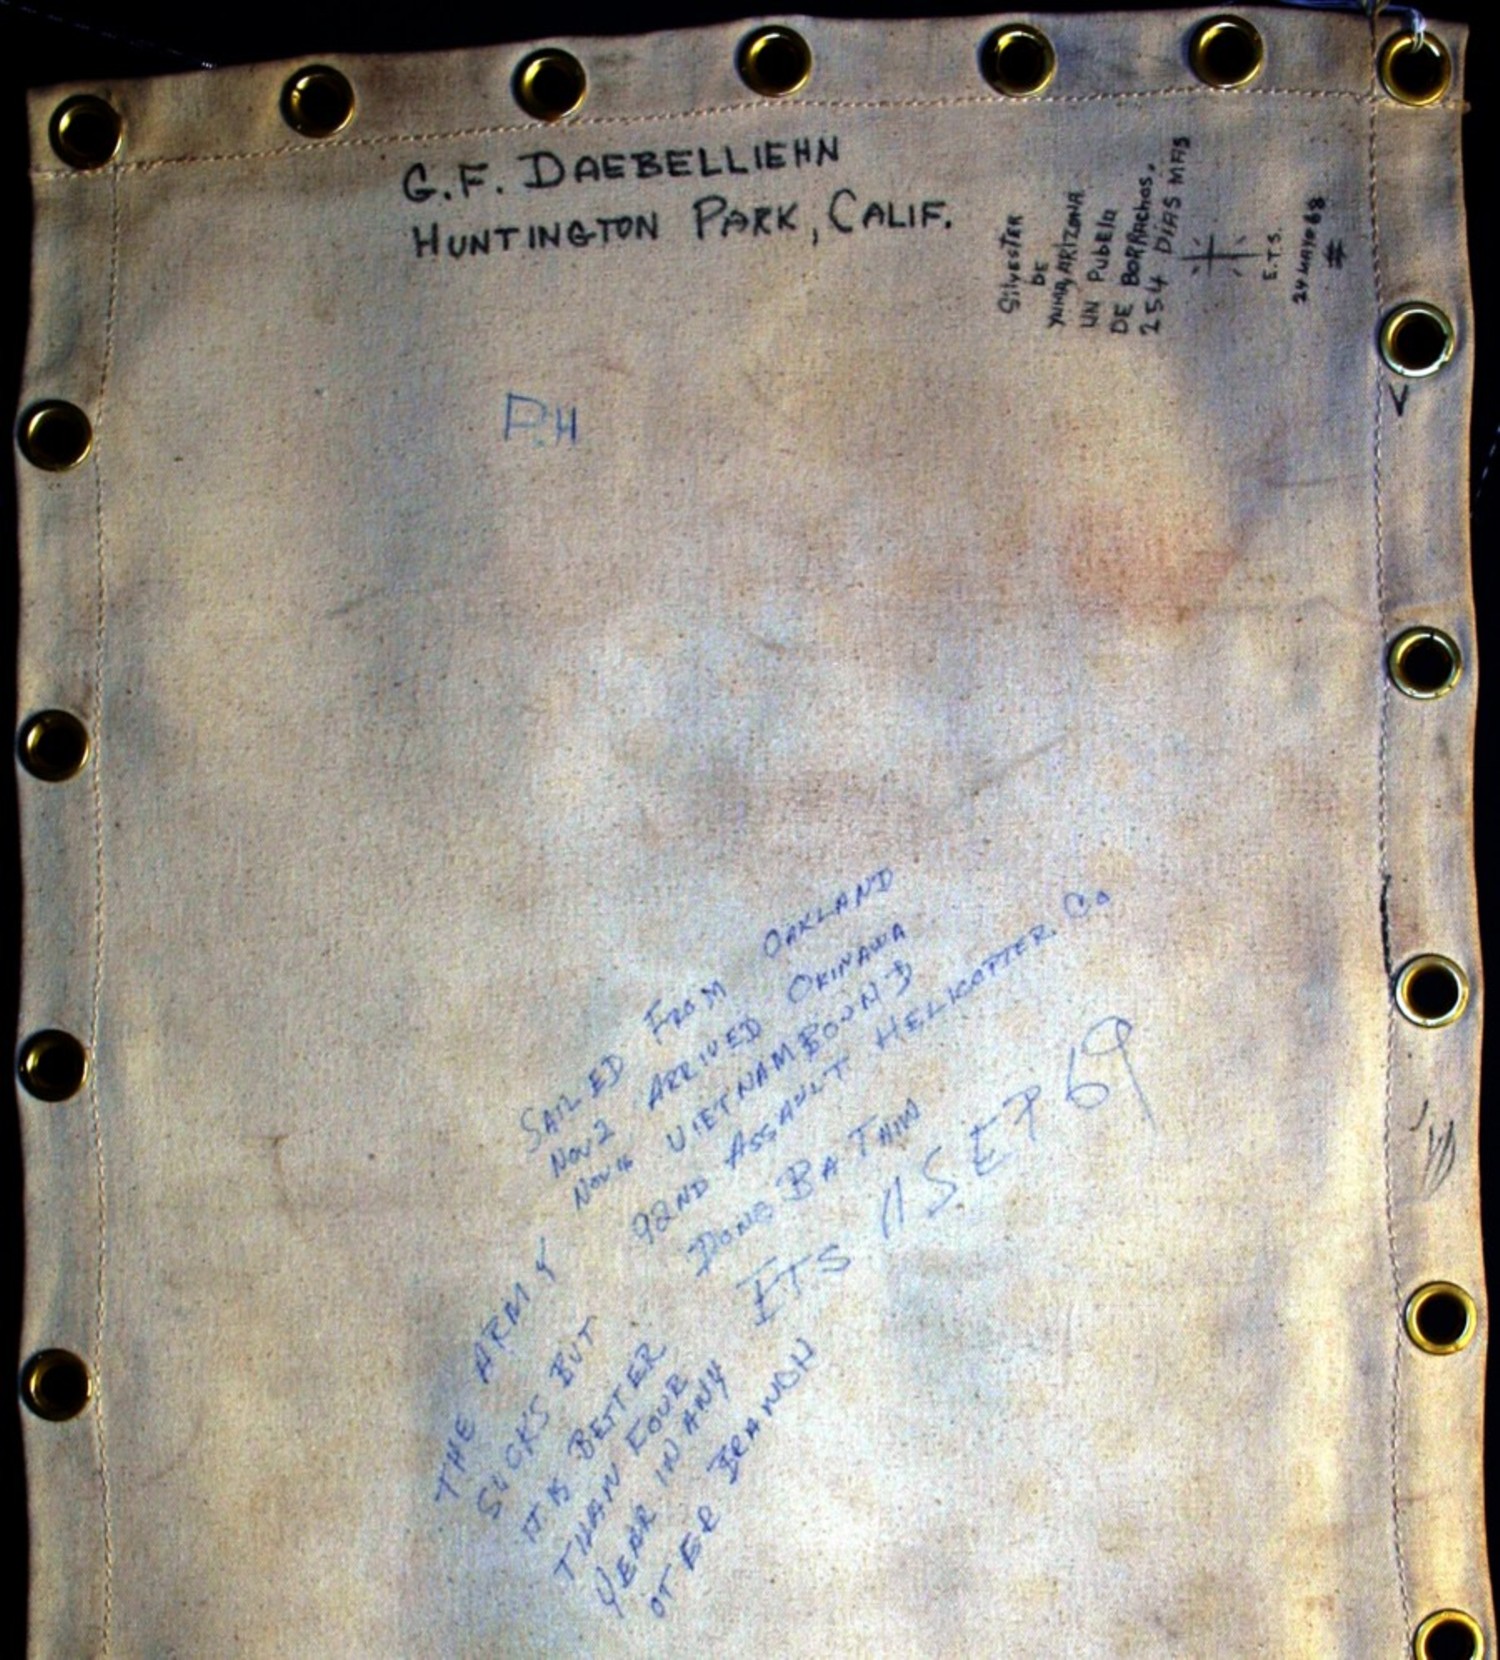 G.F. DAEBELLIEHN
HUNTINGTON PARK, CALIF.
SilvESTER
DE
YUMA, ARIZONA
UN PubElo
DE BORRAchos.
254 DIAS MAS
E.T.S.
24 MAYO 68
#
P.H
SAILED FROM OAKLAND
NOV 2 ARRIVED OKINAWA
NOV 16 VIETNAM BOUND
92ND ASSAULT HELICOPTER CO
DONG BA THIN
ETS 11 SEP 69
THE ARMY
SUCKS BUT
IT IS BETTER
THAN FOUR
YEAR IN ANY
OTER BRANCH